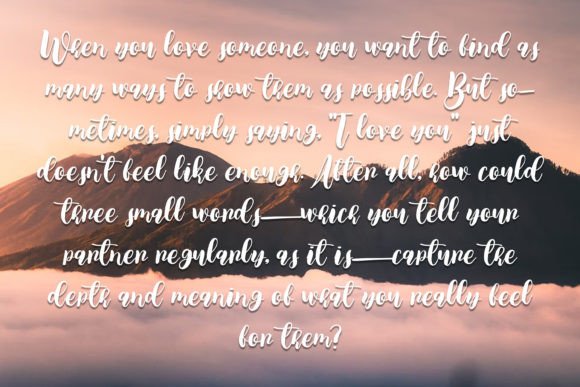 When you love someone, you want to find as
many ways to show them as possible. But so-
metimes, simply saying, "I love you" just
doesn't feel like enough. After all, how could
three small words—which you tell your
partner regularly, as it is—capture the
depth and meaning of what you really feel
for them?